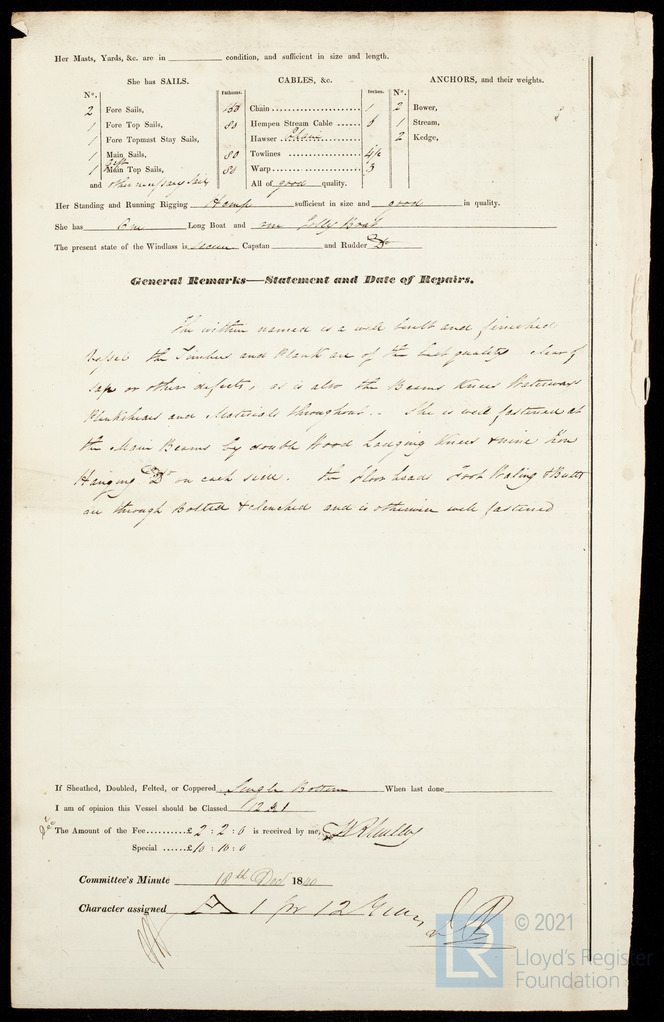 Her Masts, Yards, &c. are in condition, and sufficient in size and length.
She has SAILS. CABLES, &c. ANCHORS, and their weights.
No. Fathoms. Inches. No.
2 Fore Sails, Chain 1 2 Bower,
1 Fore Top Sails, 80 Hempen Stream Cable 1 Stream,
1 Fore Topmast Stay Sails, Hawser Chain 2 Kedge,
1 Main Sails, 80 Towlines
1 Main Top Sails, 80 Warp 3
and other necessary Sails All of good quality.
Her Standing and Running Rigging Hemp sufficient in size and good in quality.
She has One Long Boat and one Jolly Boat
The present state of the Windlass is Capstan and Rudder Do
General Remarks—Statement and Date of Repairs.
The within named is a well built and finished
Vessel the Timbers and Plank are of the best quality clear of
sap or other defects, as is also the Beams Knees Waterways
Plankshears and Materials throughout.. She is well fastened at
the Main Beams by double Wood Lodging Knees & nine Iron
Hanging Do on each side. the floor heads Foot Waling & Butts
are through bolted & clenched and is otherwise well fastened
If Sheathed, Doubled, Felted, or Coppered Single Bottom When last done
I am of opinion this Vessel should be Classed 12 A 1
The Amount of the Fee £ 2 : 2 : 0 is received by me,
Special £ 10 : 10 : 0
Committee's Minute 18th Decr 1840
Character assigned A 1 for 12 Years
© 2021
LR Lloyd's Register
Foundation